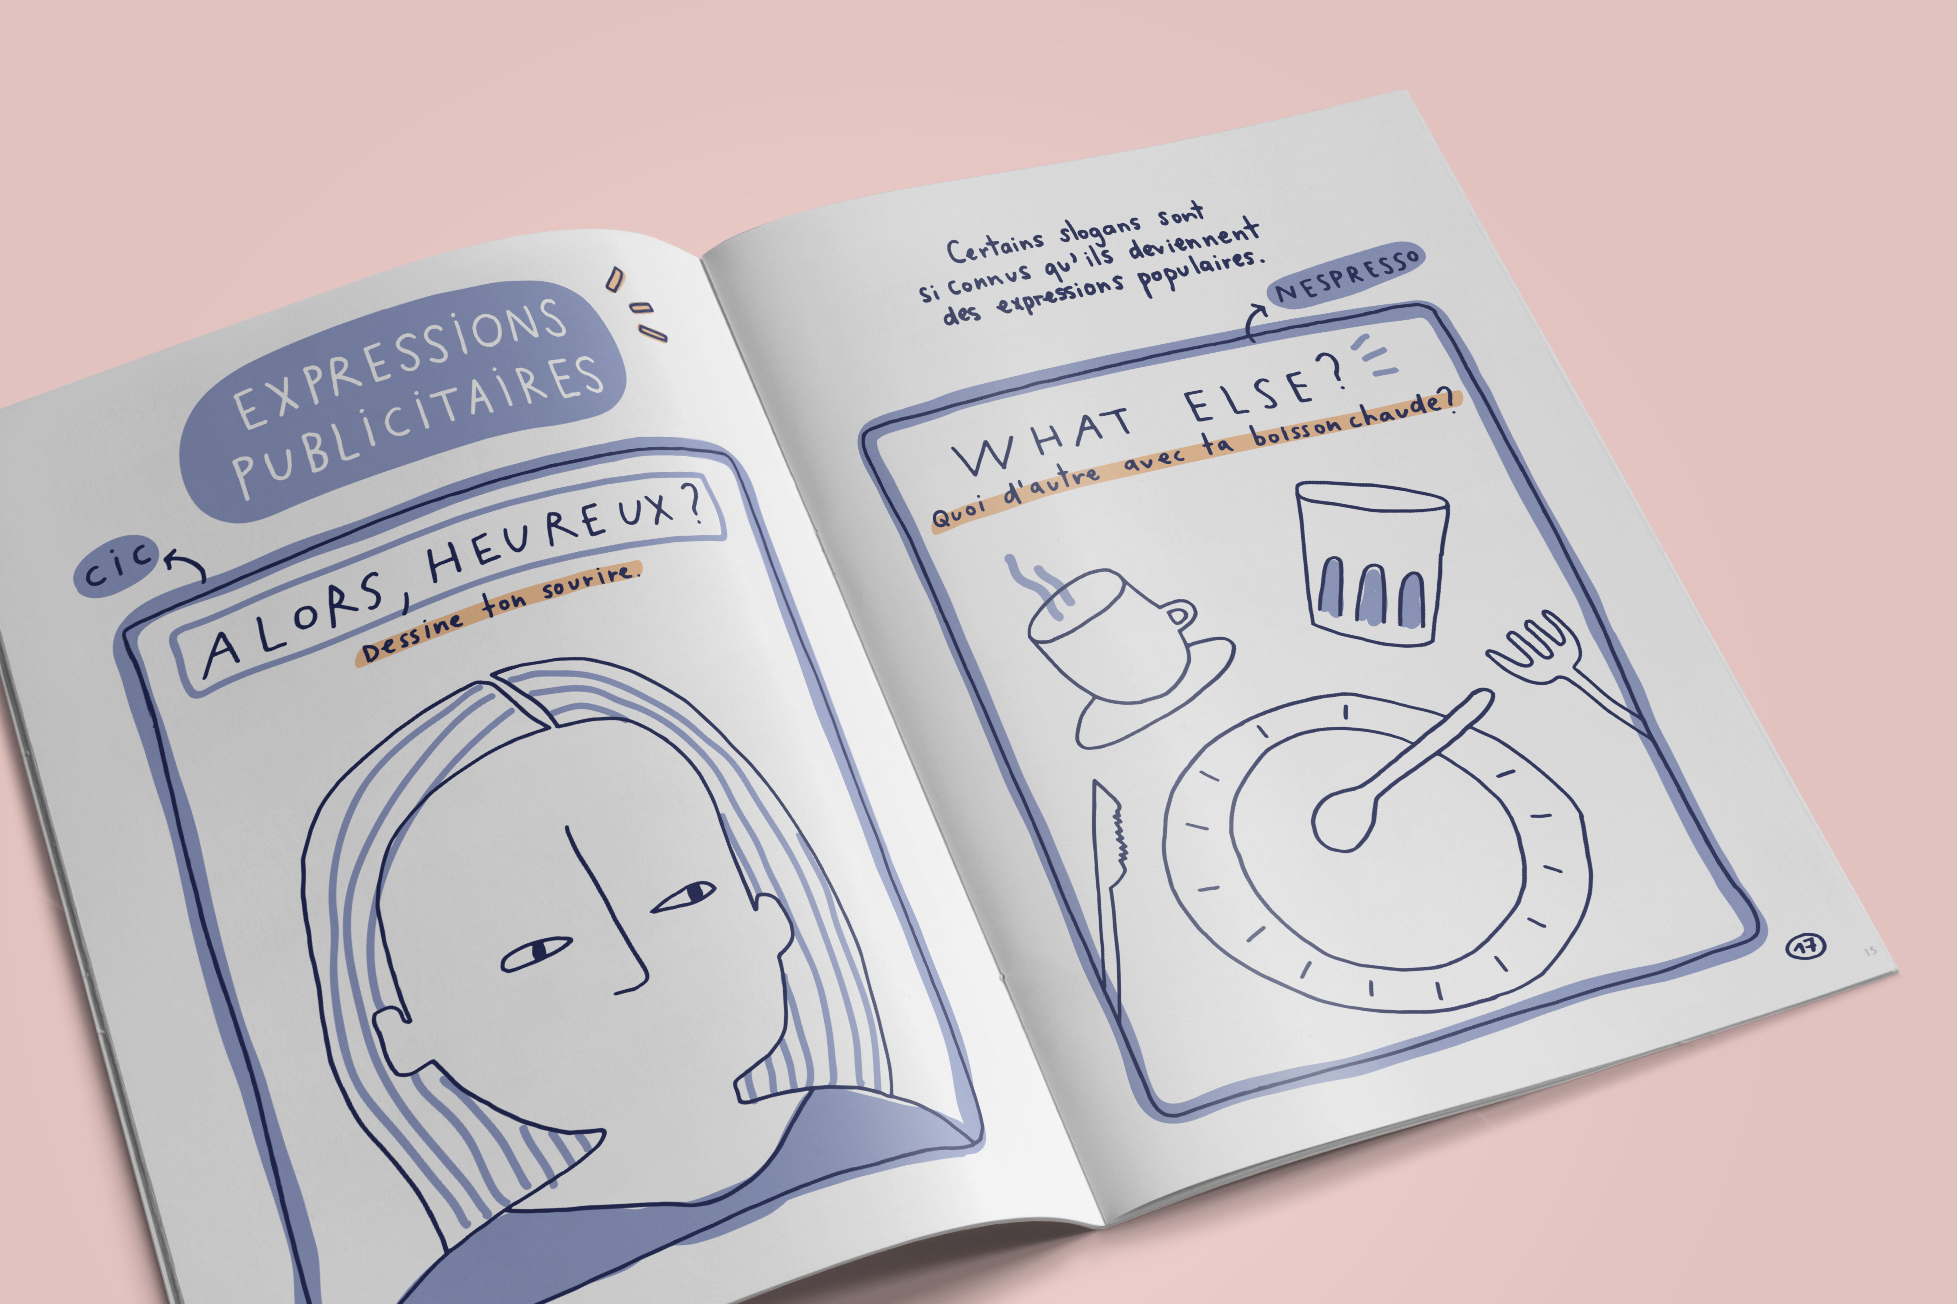 EXPRESSIONS
PUBLICITAIRES
CIC
ALORS, HEUREUX?
Dessine ton sourire.
Certains slogans sont
si connus qu'ils deviennent
des expressions populaires.
NESPRESSO
WHAT ELSE?
Quoi d'autre avec ta boisson chaude?
17
15